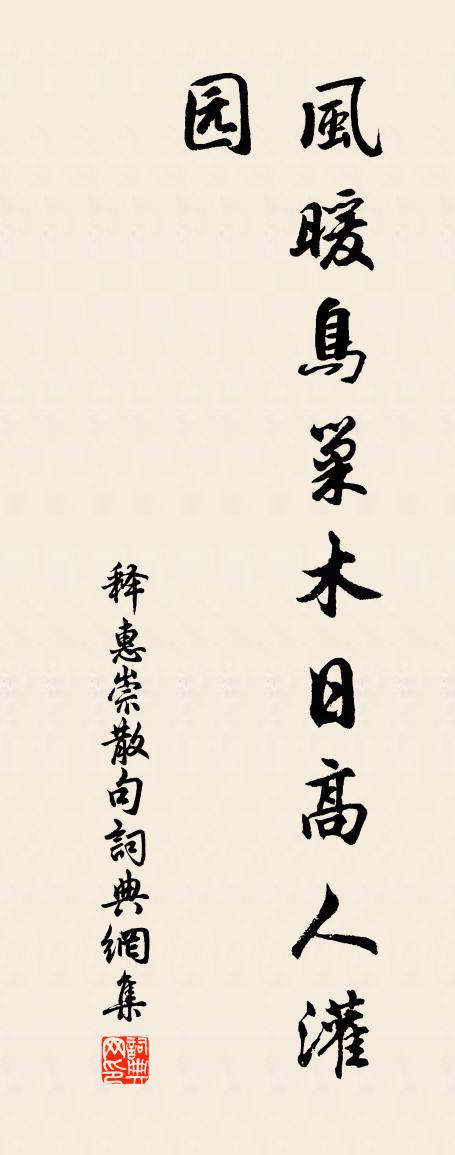 風暖鳥巢木日高人灌
园
释惠崇散句詞典網集
詞典
网印